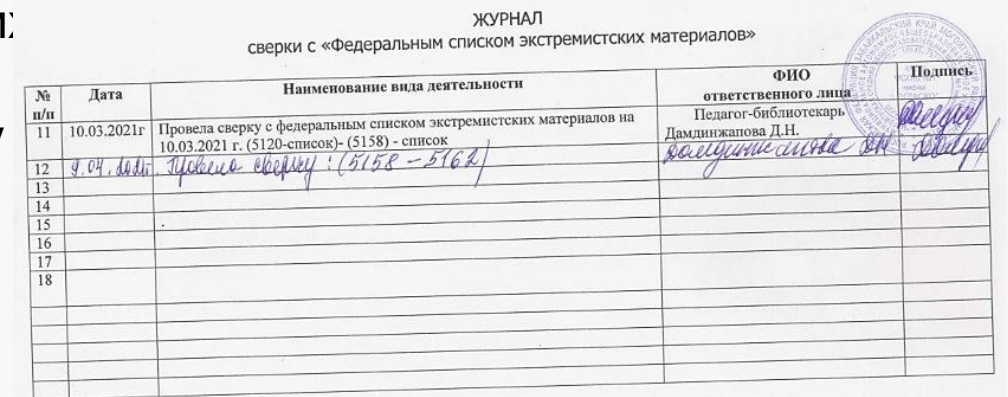 ЖУРНАЛ
сверки с «Федеральным списком экстремистских материалов»
№ п/п Дата Наименование вида деятельности ФИО ответственного лица Подпись
11 10.03.2021г Провела сверку с федеральным списком экстремистских материалов на
10.03.2021 г. (5120-список)- (5158) - список
Педагог-библиотекарь
Дамдинжапова Д.Н.
12 9.04.2021г. Провела сверку: (5158 – 5162) Дамдинжапова ДН
13
14
15
16
17
18